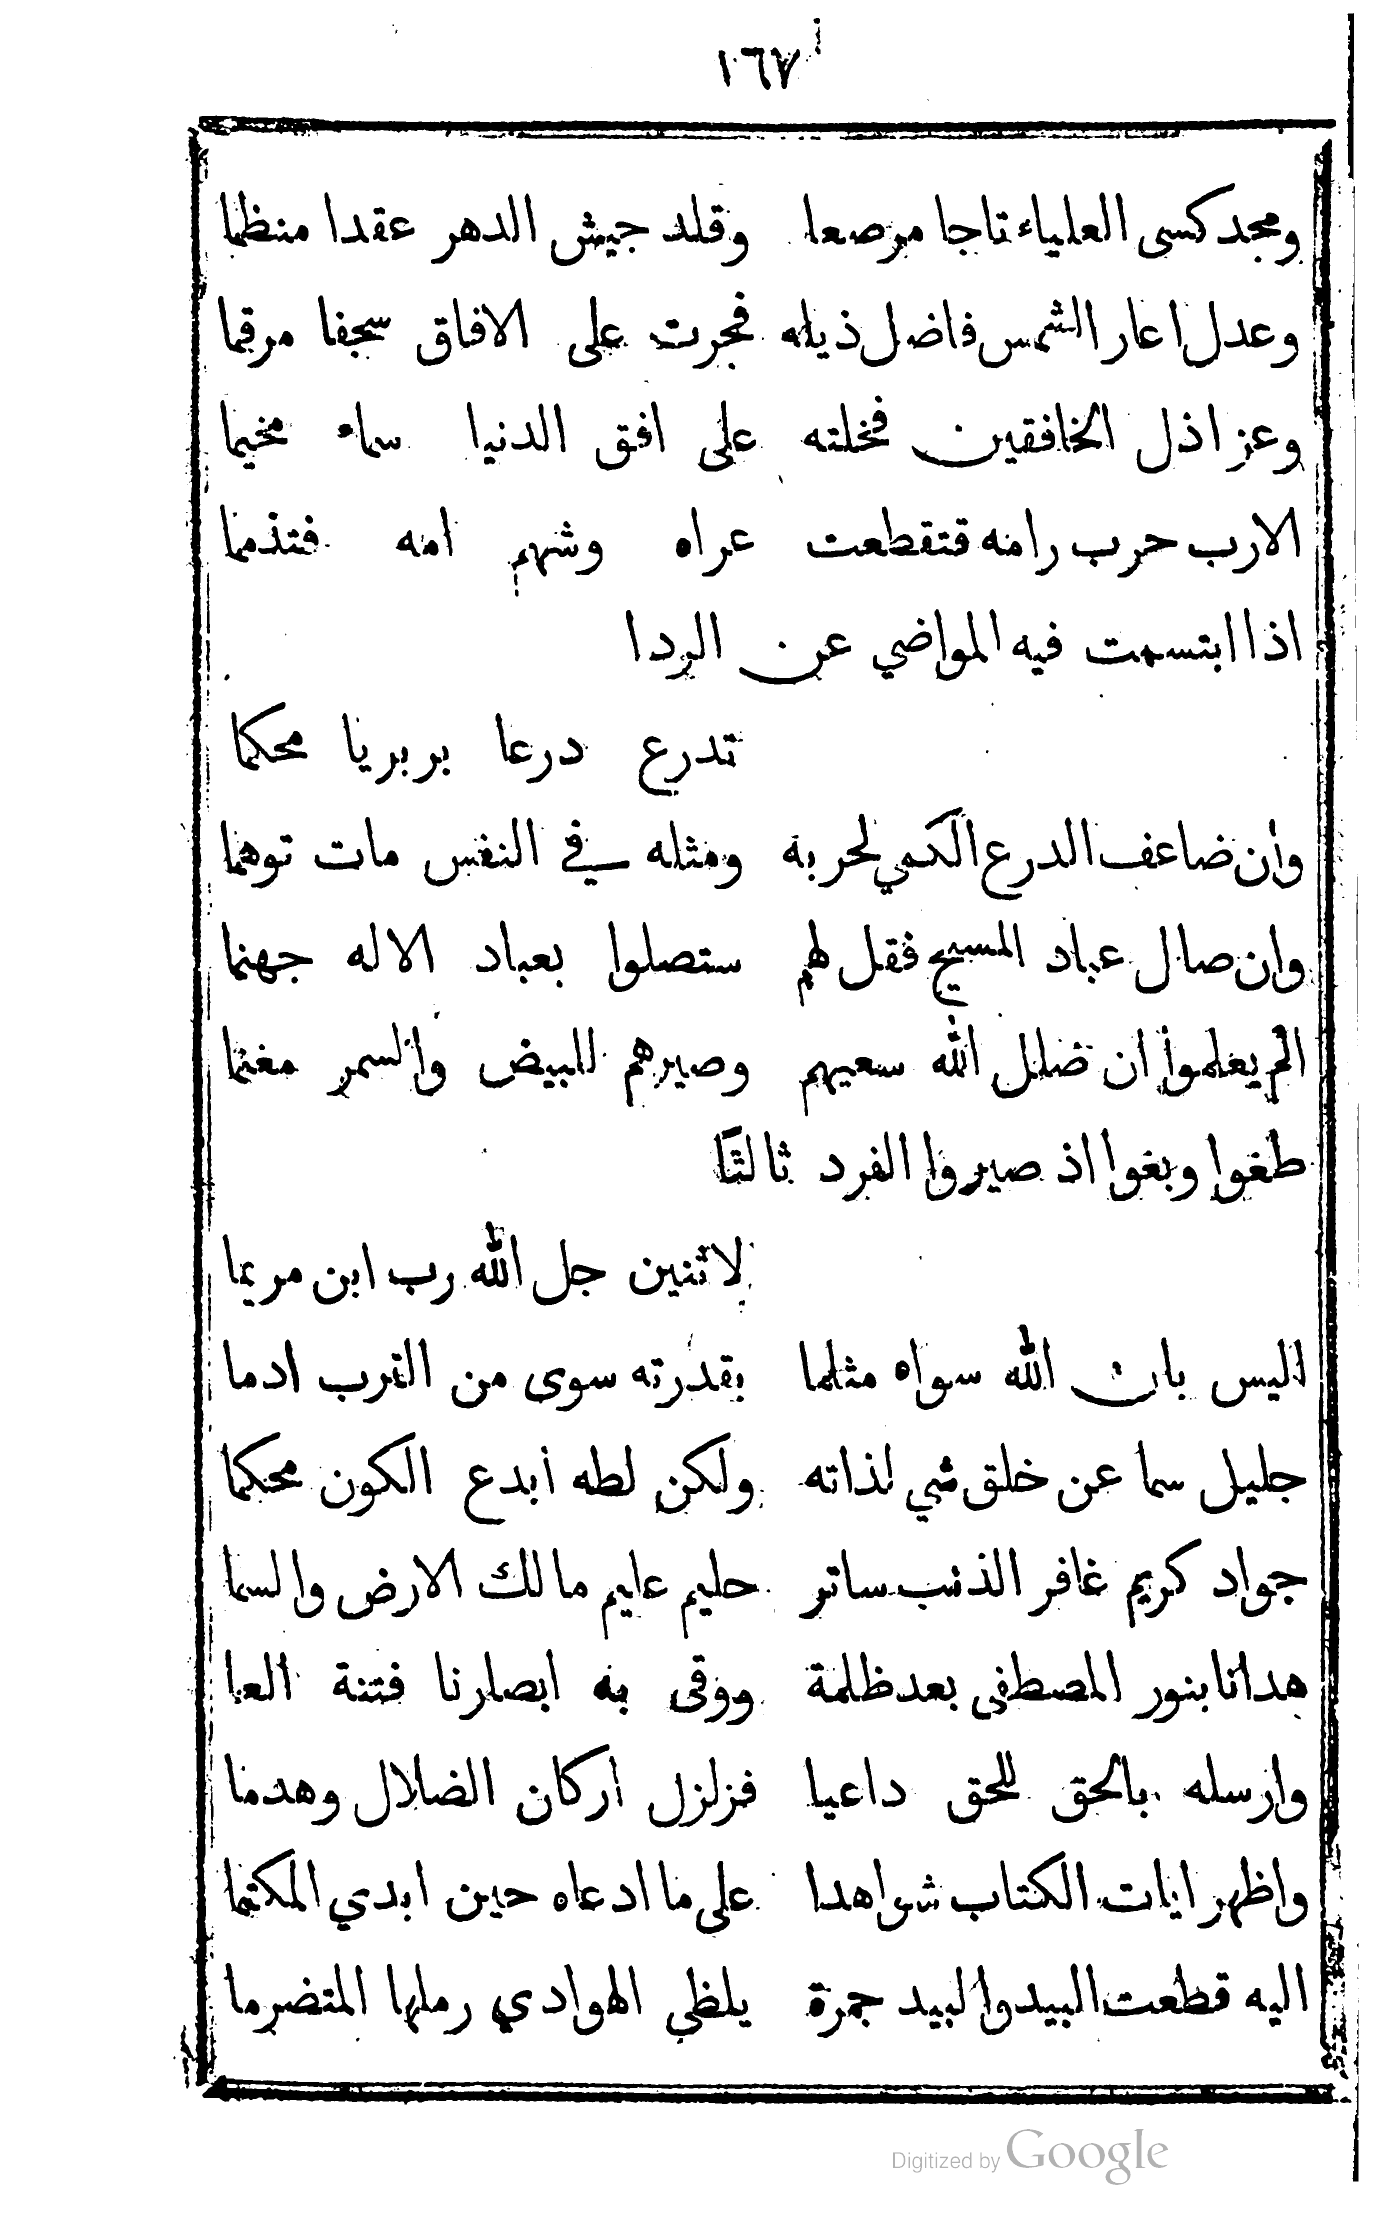 ١٦٧
ومجد كسى العلياء تاجا مرصعا وقلد جيش الدهر عقدا منظما
وعدل اعار الشمس فاضل ذيله فجرت على الافاق سجفا مرقما
وعز اذل الخافقين فخلته على افق الدنيا سماء مخيما
الارب حرب رامه فتقطعت عراه وشهم امه فتذمما
اذا ابتسمت فيه المواضي عن الردا
تدرع درعا بربريا محكما
وان ضاعف الدرع الكمي لحربه ومثله في النفس مات توهما
وان صال عباد المسيح فقل لهم ستصلوا بعباد الاله جهنما
الم يعلموا ان ضلل الله سعيهم وصيرهم للبيض والسمر مغنما
طغوا وبغوا اذ صيروا الفرد ثالثا
لاثنين جل الله رب ابن مريما
اليس بان الله سواه مثلما بقدرته سوى من الترب ادما
جليل سما عن خلق شي لذاته ولكن لطه ابدع الكون محكما
جواد كريم غافر الذنب ساتر حليم عليم مالك الارض والسما
هدانا بنور المصطفى بعد ظلمة ووقى به ابصارنا فتنة العما
وارسله بالحق للحق داعيا فزلزل اركان الضلال وهدما
واظهر ايات الكتاب شواهدا على ما ادعاه حين ابدي المكتما
اليه قطعت البيد والبيد جمرة يلظى الهوادي رملها المتضرما
Digitized by Google